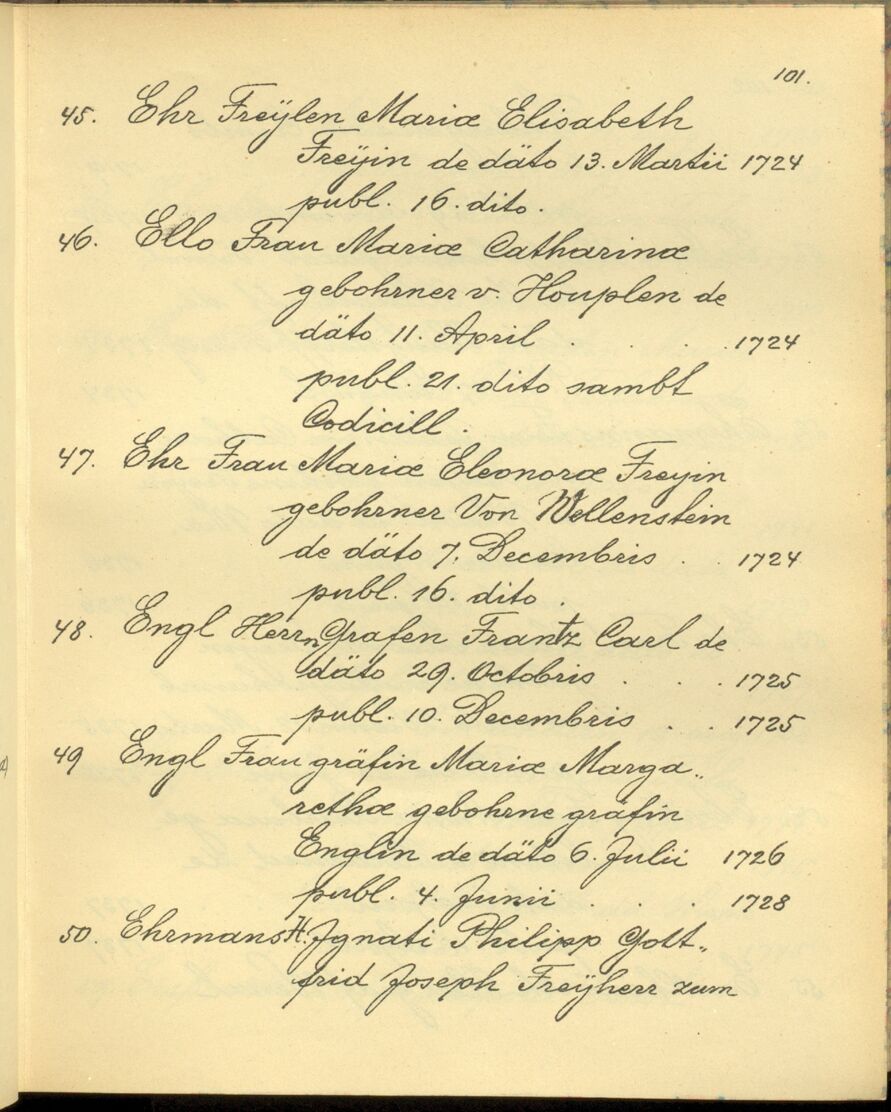 101.
45. Ehr Freÿlen Mariæ Elisabeth
Freÿin de däto 13. Martii 1724
publ. 16. dito.
46. Ello Frau Mariæ Catharinæ
gebohrner v. Houplen de
däto 11. April . . . . 1724
publ. 21. dito sambt
Codicill.
47. Ehr Frau Mariæ Eleonoræ Freyin
gebohrner Von Wellenstein
de däto 7. Decembris . . 1724
publ. 16. dito.
48. Engl Herrn Grafen Frantz Carl de
däto 29. Octobris . . . 1725
publ. 10. Decembris . . 1725
49 Engl Frau gräfin Mariæ Marga„
rethæ gebohrne gräfin
Englin de däto 6. Julii 1726
publ. 4. Junii . . . 1728
50. Ehrmans H. Jgnati Philipp Gott„
frid Joseph Freÿherr zum